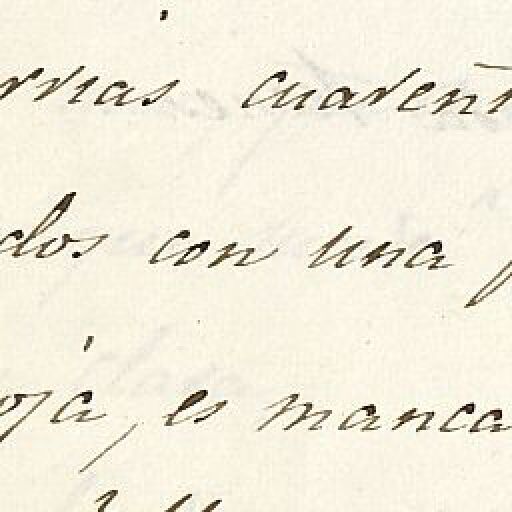 rrias cuareñ
dos con una
oja, es manca